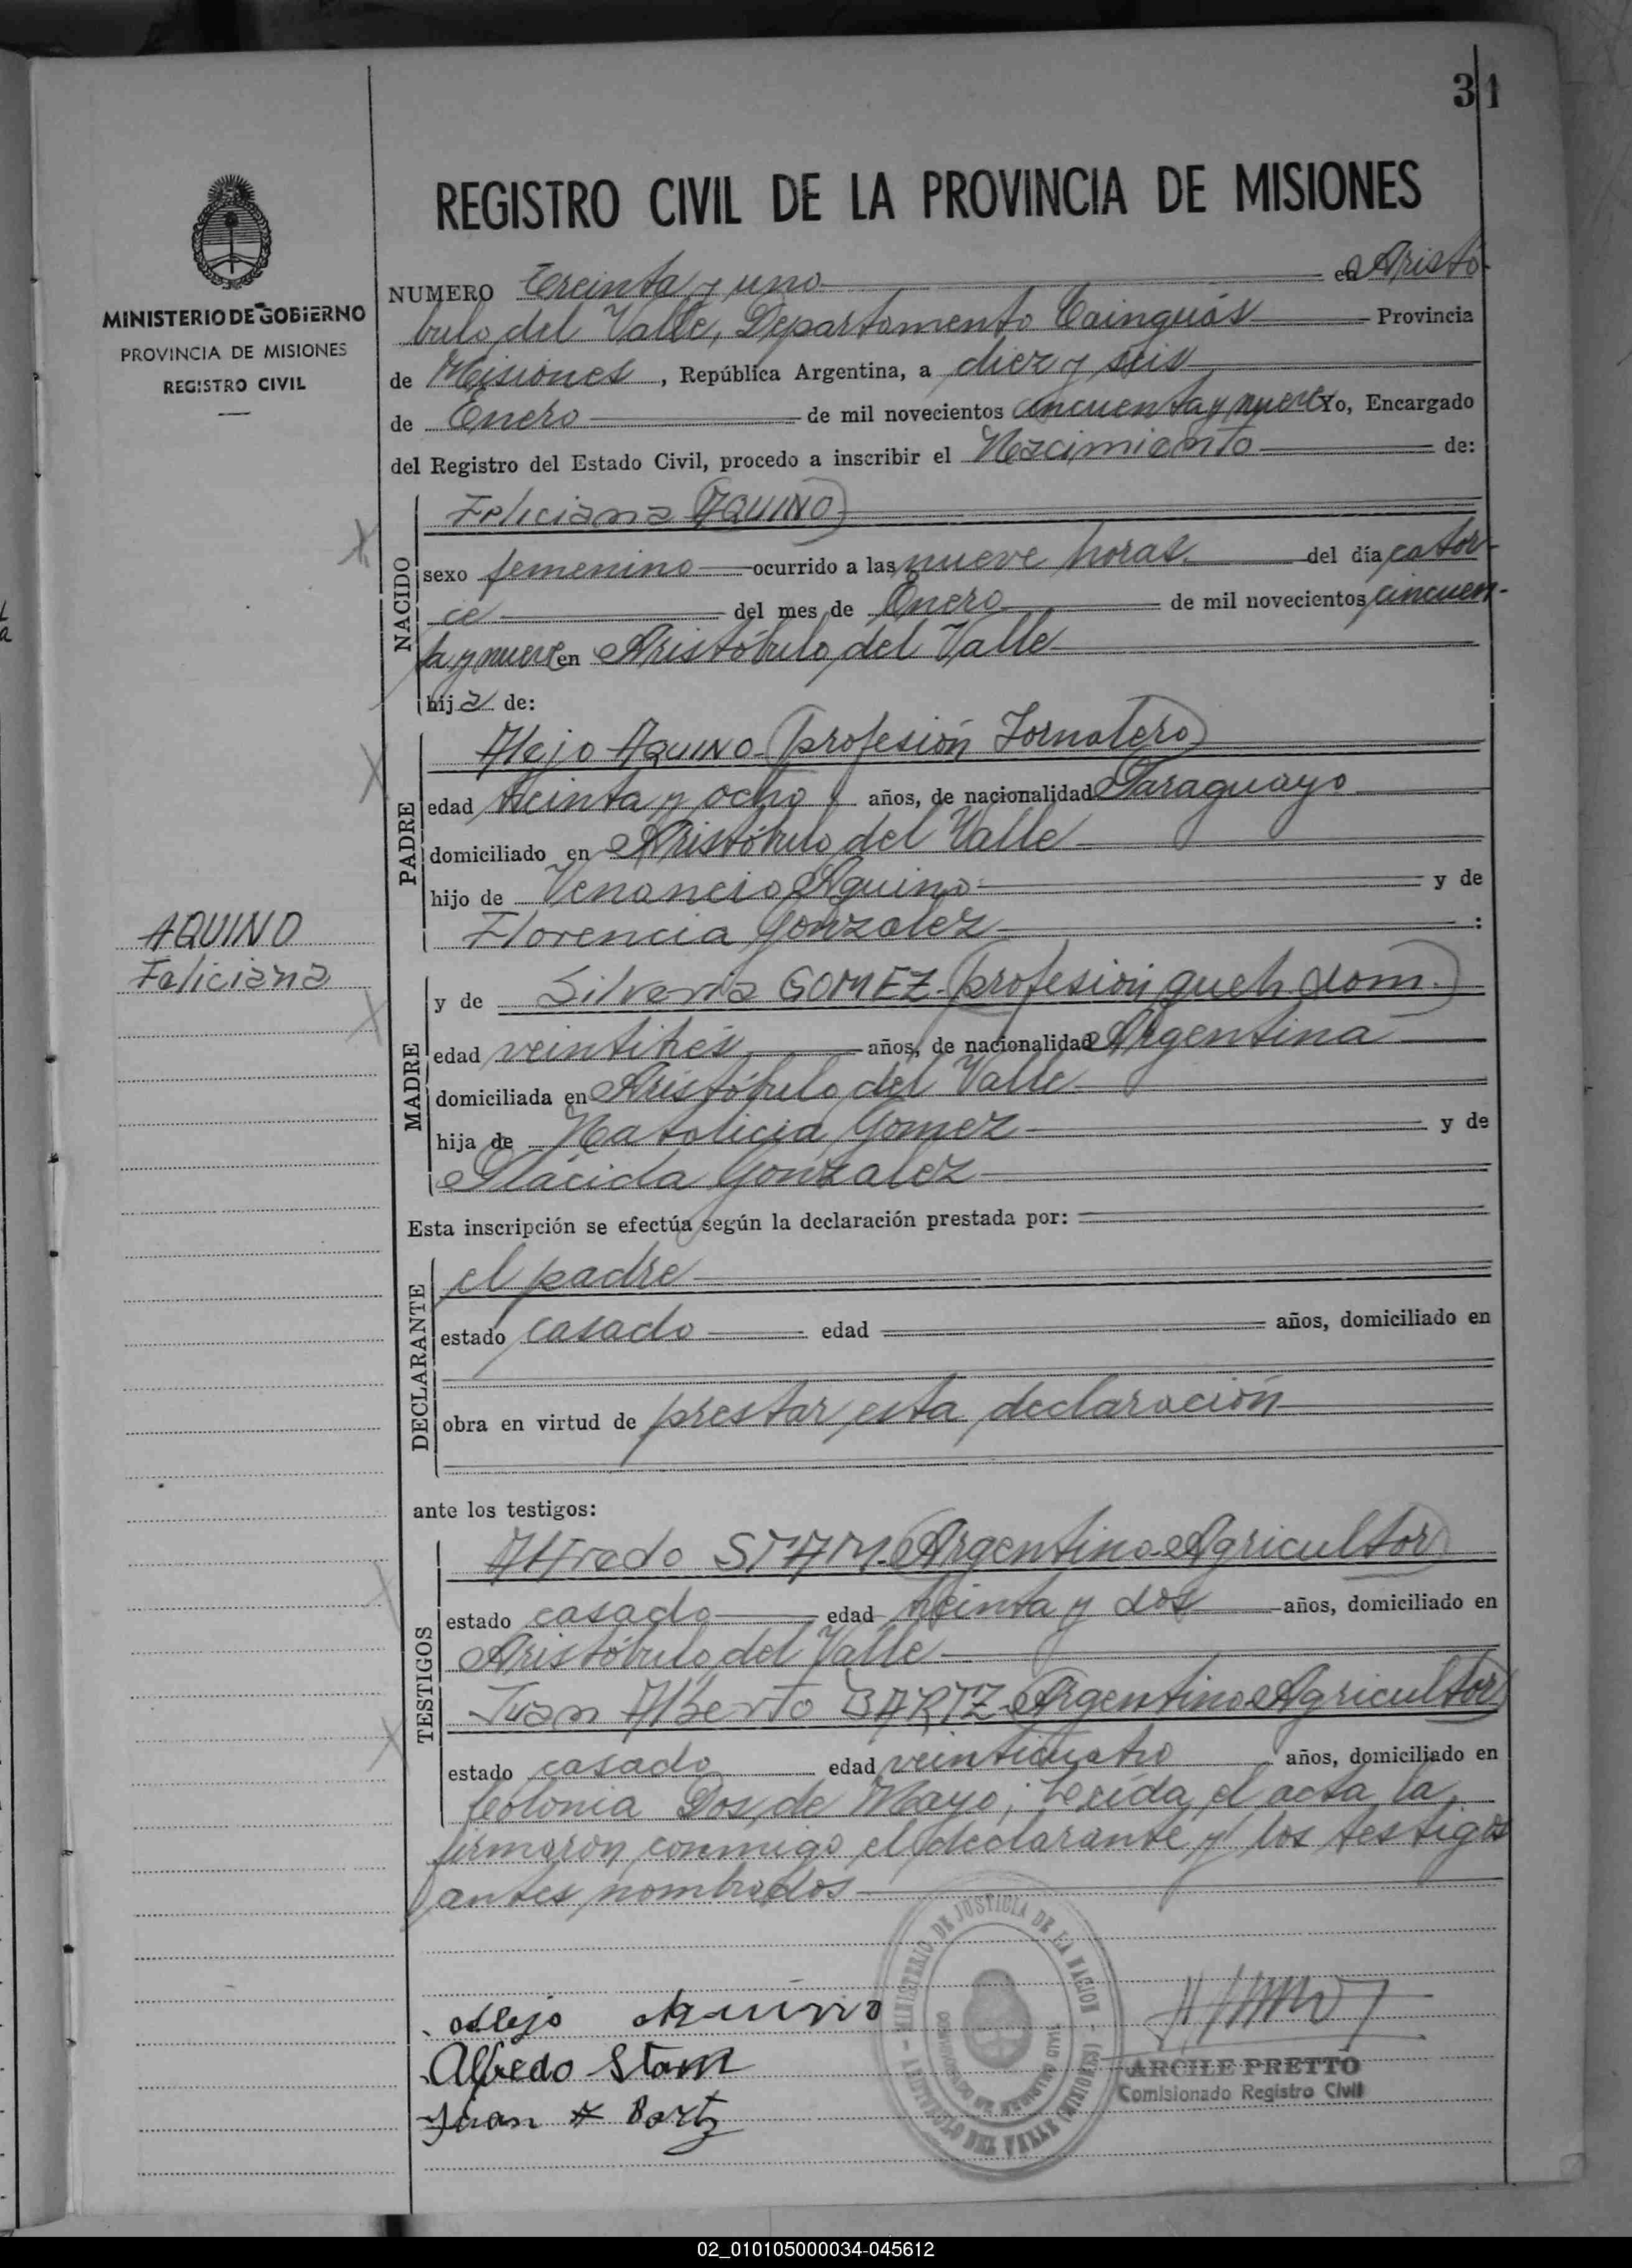 31
MINISTERIO DE GOBIERNO
PROVINCIA DE MISIONES
REGISTRO CIVIL
REGISTRO CIVIL DE LA PROVINCIA DE MISIONES
NUMERO Treinta y uno en Aristó
bulo del Valle, Departamento Cainguás Provincia
de Misiones, República Argentina, a diez y seis
de Enero de mil novecientos cincuenta y nueve Yo, Encargado
del Registro del Estado Civil, procedo a inscribir el Nacimiento de:
NACIDO
Feliciana (AQUINO)
sexo femenino ocurrido a las nueve horas. del día cator-
ce del mes de Enero de mil novecientos cincuen-
ta y nueve en Aristóbulo del Valle
hija de:
PADRE
Alejo AQUINO (profesión Jornalero)
edad treinta y ocho años, de nacionalidad Paraguayo
domiciliado en Aristóbulo del Valle
hijo de Venancio Aquino y de
Florencia Gonzalez :
AQUINO
Feliciana
MADRE
y de Silveria GOMEZ (profesión queh. dom.)
edad veintitrés años, de nacionalidad Argentina
domiciliada en Aristóbulo del Valle
hija de Natalicia Gomez y de
Plácida Gonzalez
Esta inscripción se efectúa según la declaración prestada por:
DECLARANTE
el padre
estado casado edad años, domiciliado en
obra en virtud de prestar esta declaración
ante los testigos:
TESTIGOS
Alfredo STAM. (Argentino-Agricultor)
estado casado edad treinta y dos años, domiciliado en
Aristóbulo del Valle
Juan Alberto BARTZ (Argentino-Agricultor)
estado casado edad veinticuatro años, domiciliado en
Colonia Dos de Mayo; Leída el acta la
firmaron conmigo el declarante y los testigos
antes nombrados
Alejo Aquino
Alfredo Stam
Juan A Bartz
MINISTERIO DE JUSTICIA DE LA NACION - (MISIONES) - ARISTOBULO DEL VALLE
ARCILE PRETTO
Comisionado Registro Civil
02_010105000034-045612